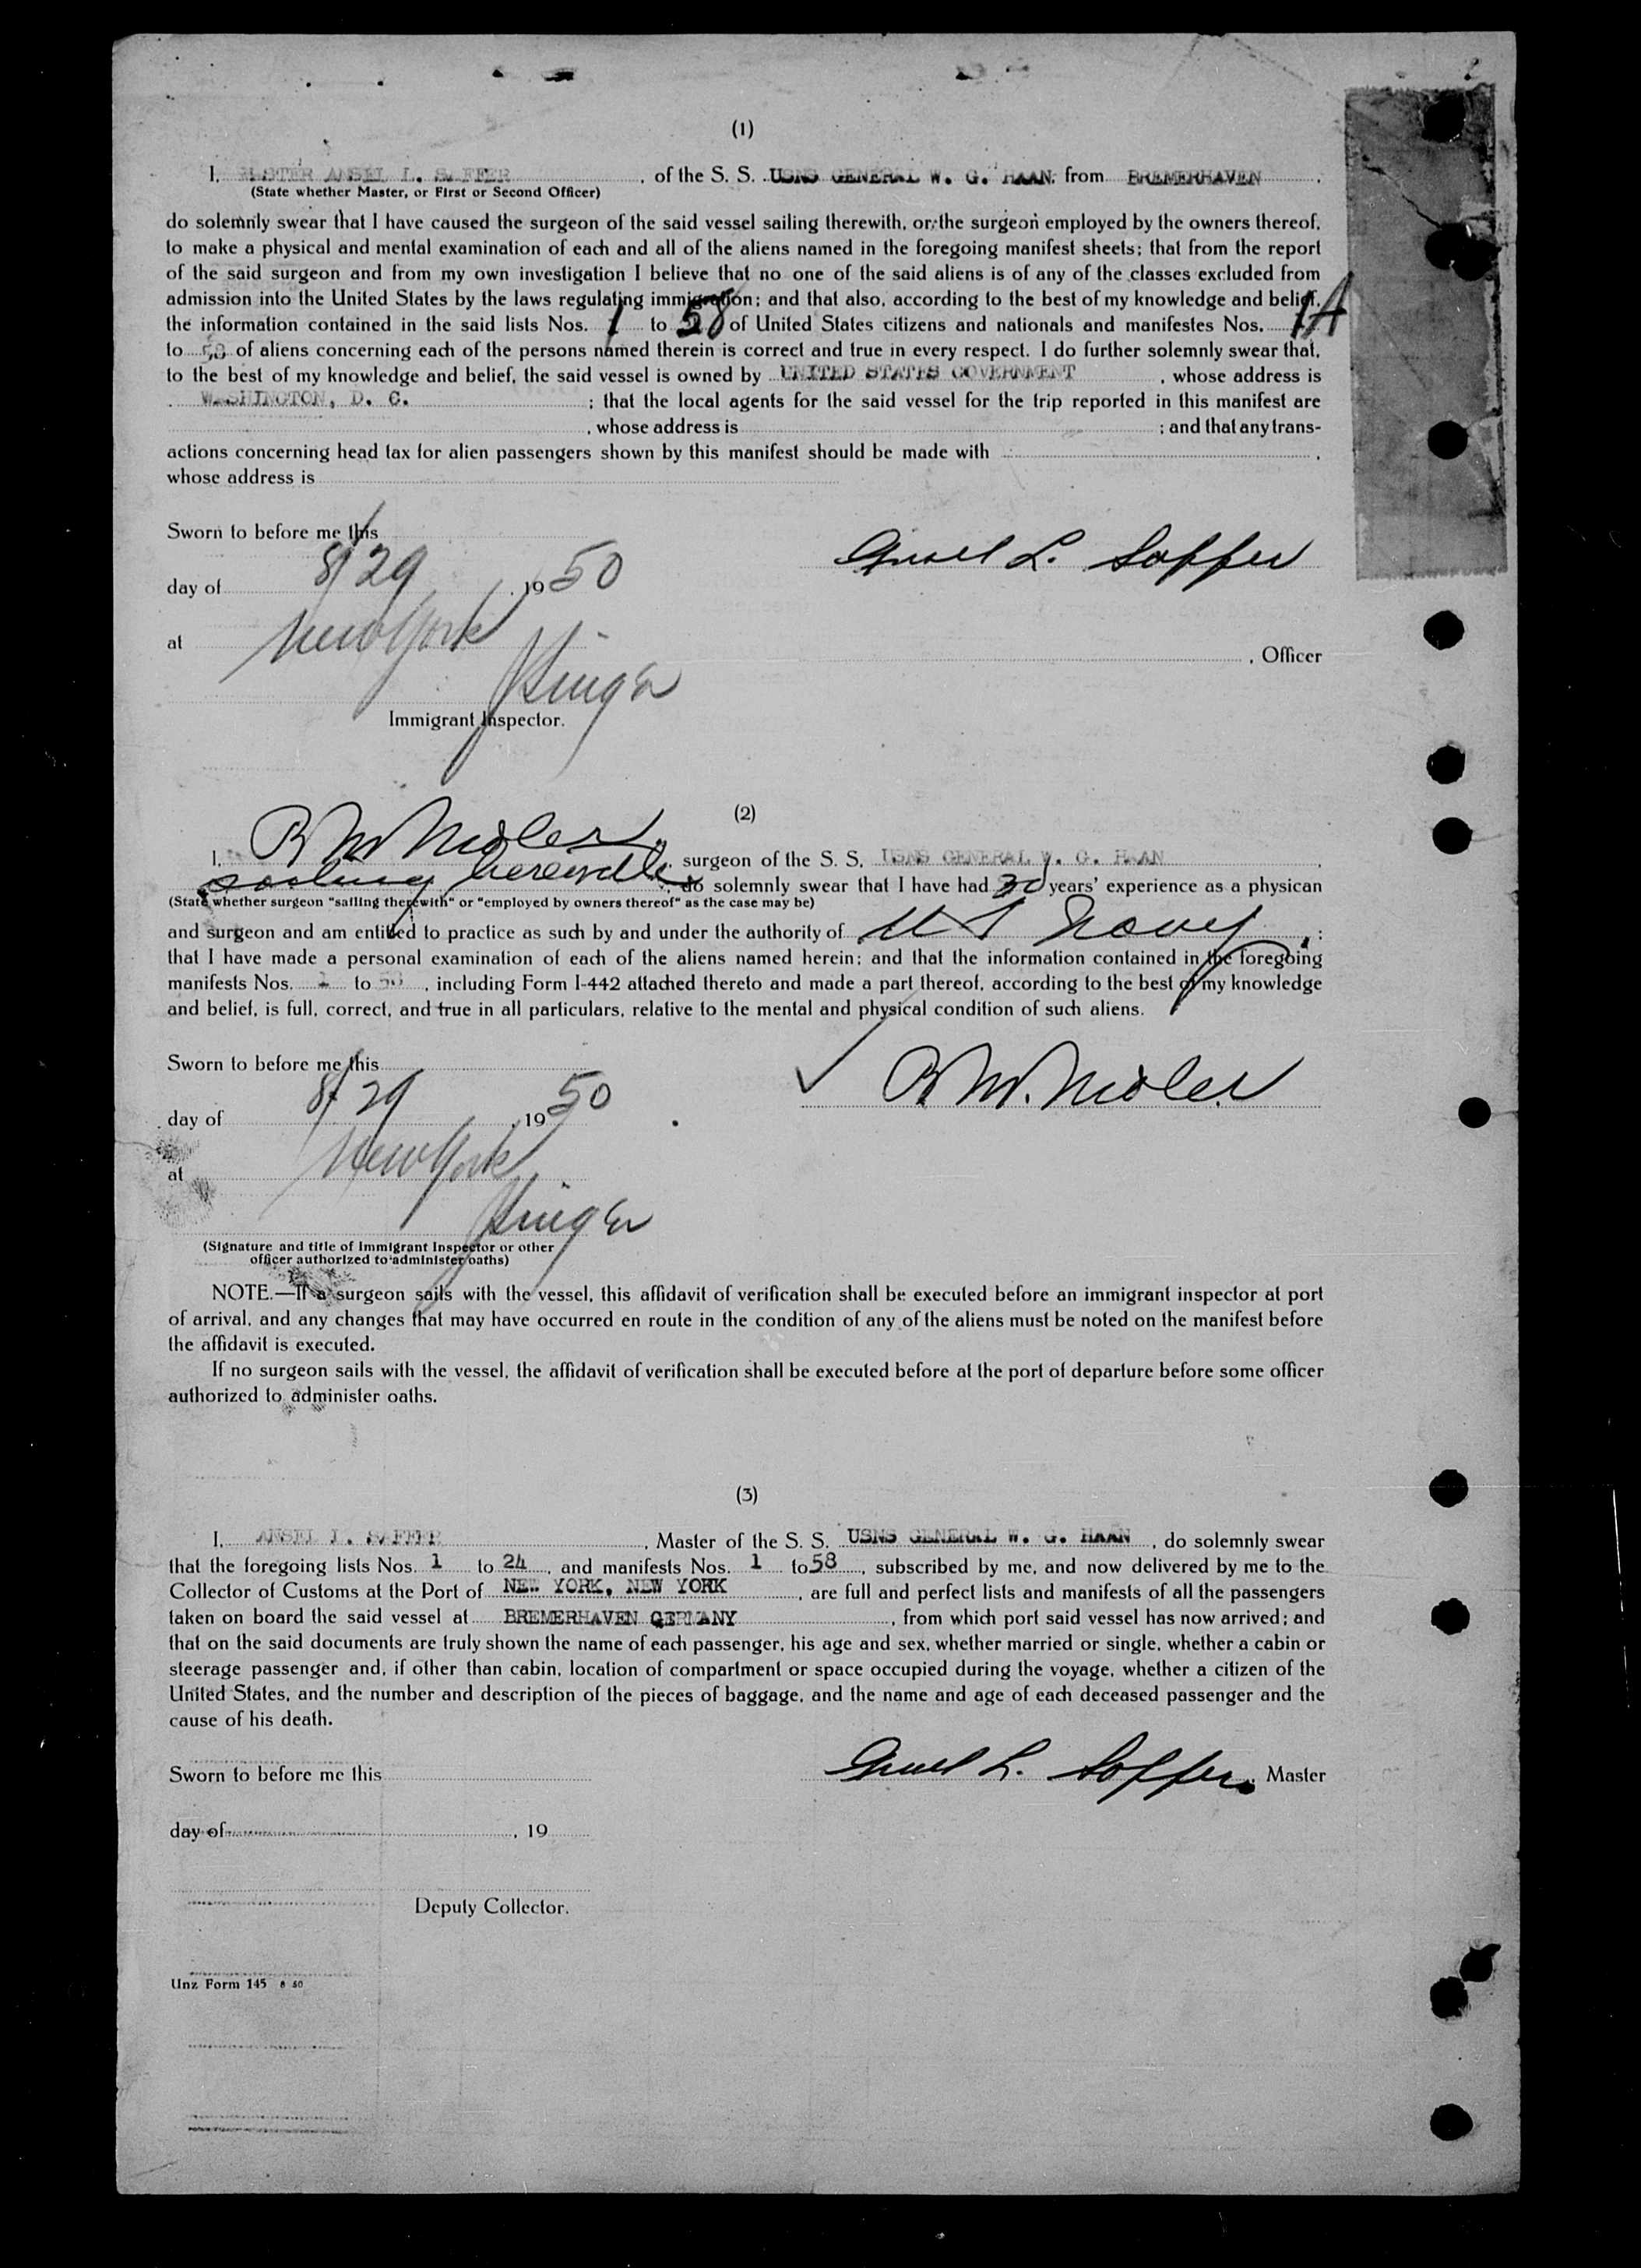 (1)
I, MASTER ANSEL L. SAFFER, of the S. S. USNS GENERAL W. G. HAAN, from BREMERHAVEN,
(State whether Master, or First or Second Officer)
do solemnly swear that I have caused the surgeon of the said vessel sailing therewith, or the surgeon employed by the owners thereof,
to make a physical and mental examination of each and all of the aliens named in the foregoing manifest sheets; that from the report
of the said surgeon and from my own investigation I believe that no one of the said aliens is of any of the classes excluded from
admission into the United States by the laws regulating immigration; and that also, according to the best of my knowledge and belief,
the information contained in the said lists Nos. 1 to 58 of United States citizens and nationals and manifestes Nos. 1A
to 58 of aliens concerning each of the persons named therein is correct and true in every respect. I do further solemnly swear that,
to the best of my knowledge and belief, the said vessel is owned by UNITED STATES GOVERNMENT, whose address is
WASHINGTON, D. C. ; that the local agents for the said vessel for the trip reported in this manifest are
, whose address is ; and that any trans-
actions concerning head tax for alien passengers shown by this manifest should be made with ,
whose address is
Sworn to before me this
Ansel L. Saffer
day of 8/29, 1950
at New York
, Officer
Immigrant Inspector.
(2)
I, surgeon of the S. S. USNS GENERAL W. G. HAAN,
sailing therewith, do solemnly swear that I have had 20 years' experience as a physican
(State whether surgeon "sailing therewith" or "employed by owners thereof" as the case may be)
and surgeon and am entitled to practice as such by and under the authority of U S Navy ;
that I have made a personal examination of each of the aliens named herein; and that the information contained in the foregoing
manifests Nos. 1 to 58, including Form I-442 attached thereto and made a part thereof, according to the best of my knowledge
and belief, is full, correct, and true in all particulars, relative to the mental and physical condition of such aliens.
Sworn to before me this
day of 8/29, 1950
at New York
(Signature and title of Immigrant Inspector or other
officer authorized to administer oaths)
NOTE.—If a surgeon sails with the vessel, this affidavit of verification shall be executed before an immigrant inspector at port
of arrival, and any changes that may have occurred en route in the condition of any of the aliens must be noted on the manifest before
the affidavit is executed.
If no surgeon sails with the vessel, the affidavit of verification shall be executed before at the port of departure before some officer
authorized to administer oaths.
(3)
I, ANSEL L. SAFFER, Master of the S. S. USNS GENERAL W. G. HAAN, do solemnly swear
that the foregoing lists Nos. 1 to 24, and manifests Nos. 1 to 58, subscribed by me, and now delivered by me to the
Collector of Customs at the Port of NEW YORK, NEW YORK, are full and perfect lists and manifests of all the passengers
taken on board the said vessel at BREMERHAVEN GERMANY, from which port said vessel has now arrived; and
that on the said documents are truly shown the name of each passenger, his age and sex, whether married or single, whether a cabin or
steerage passenger and, if other than cabin, location of compartment or space occupied during the voyage, whether a citizen of the
United States, and the number and description of the pieces of baggage, and the name and age of each deceased passenger and the
cause of his death.
Sworn to before me this
Ansel L. Saffer, Master
day of , 19
Deputy Collector.
Unz Form 145 8 50